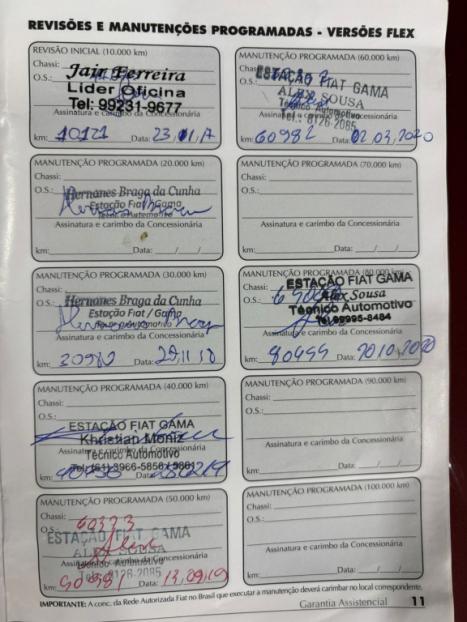 REVISÕES E MANUTENÇÕES PROGRAMADAS - VERSÕES FLEX
REVISÃO INICIAL (10.000 km)
Chassi:
Jair Ferreira
O.S.:
Líder Oficina
Tel: 99231-9677
Assinatura e carimbo da Concessionária
km: 10121 Data: 23,11,17
MANUTENÇÃO PROGRAMADA (20.000 km)
Chassi:
O.S.: Hernanes Braga da Cunha
Estação Fiat/Gama
Assinatura e carimbo da Concessionária
km: Data: / /
MANUTENÇÃO PROGRAMADA (30.000 km)
Chassi:
O.S.: Hernanes Braga da Cunha
Estação Fiat / Gama
Assinatura e carimbo da Concessionária
km: Data:
MANUTENÇÃO PROGRAMADA (40.000 km)
Chassi:
O.S.:
ESTAÇÃO FIAT GAMA
Khristian Moniz
Técnico Automotivo
km: Data:
MANUTENÇÃO PROGRAMADA (50.000 km)
Chassi:
O.S.:
ESTAÇÃO FIAT GAMA
ALEX SOUSA
Assinatura e carimbo da Concessionária
km: 50981 Data: 13,09,19
MANUTENÇÃO PROGRAMADA (60.000 km)
Chassi:
O.S.:
ESTAÇÃO FIAT GAMA
ALEX SOUSA
Técnico Automotivo
Tel.: 8126-2085
Assinatura e carimbo da Concessionária
km: 60982 Data: 02,03,2020
MANUTENÇÃO PROGRAMADA (70.000 km)
Chassi:
O.S.:
Assinatura e carimbo da Concessionária
km: Data: / /
MANUTENÇÃO PROGRAMADA (80.000 km)
Chassi:
ESTAÇÃO FIAT GAMA
O.S.:
Alex Sousa
Técnico Automotivo
Tel: 99995-8484
Assinatura e carimbo da Concessionária
km: Data: 20,10,2020
MANUTENÇÃO PROGRAMADA (90.000 km)
Chassi:
O.S.:
Assinatura e carimbo da Concessionária
km: Data: / /
MANUTENÇÃO PROGRAMADA (100.000 km)
Chassi:
O.S.:
Assinatura e carimbo da Concessionária
km: Data: / /
IMPORTANTE: A conc. da Rede Autorizada Fiat no Brasil que executar a manutenção deverá carimbar no local correspondente.
Garantia Assistencial 11